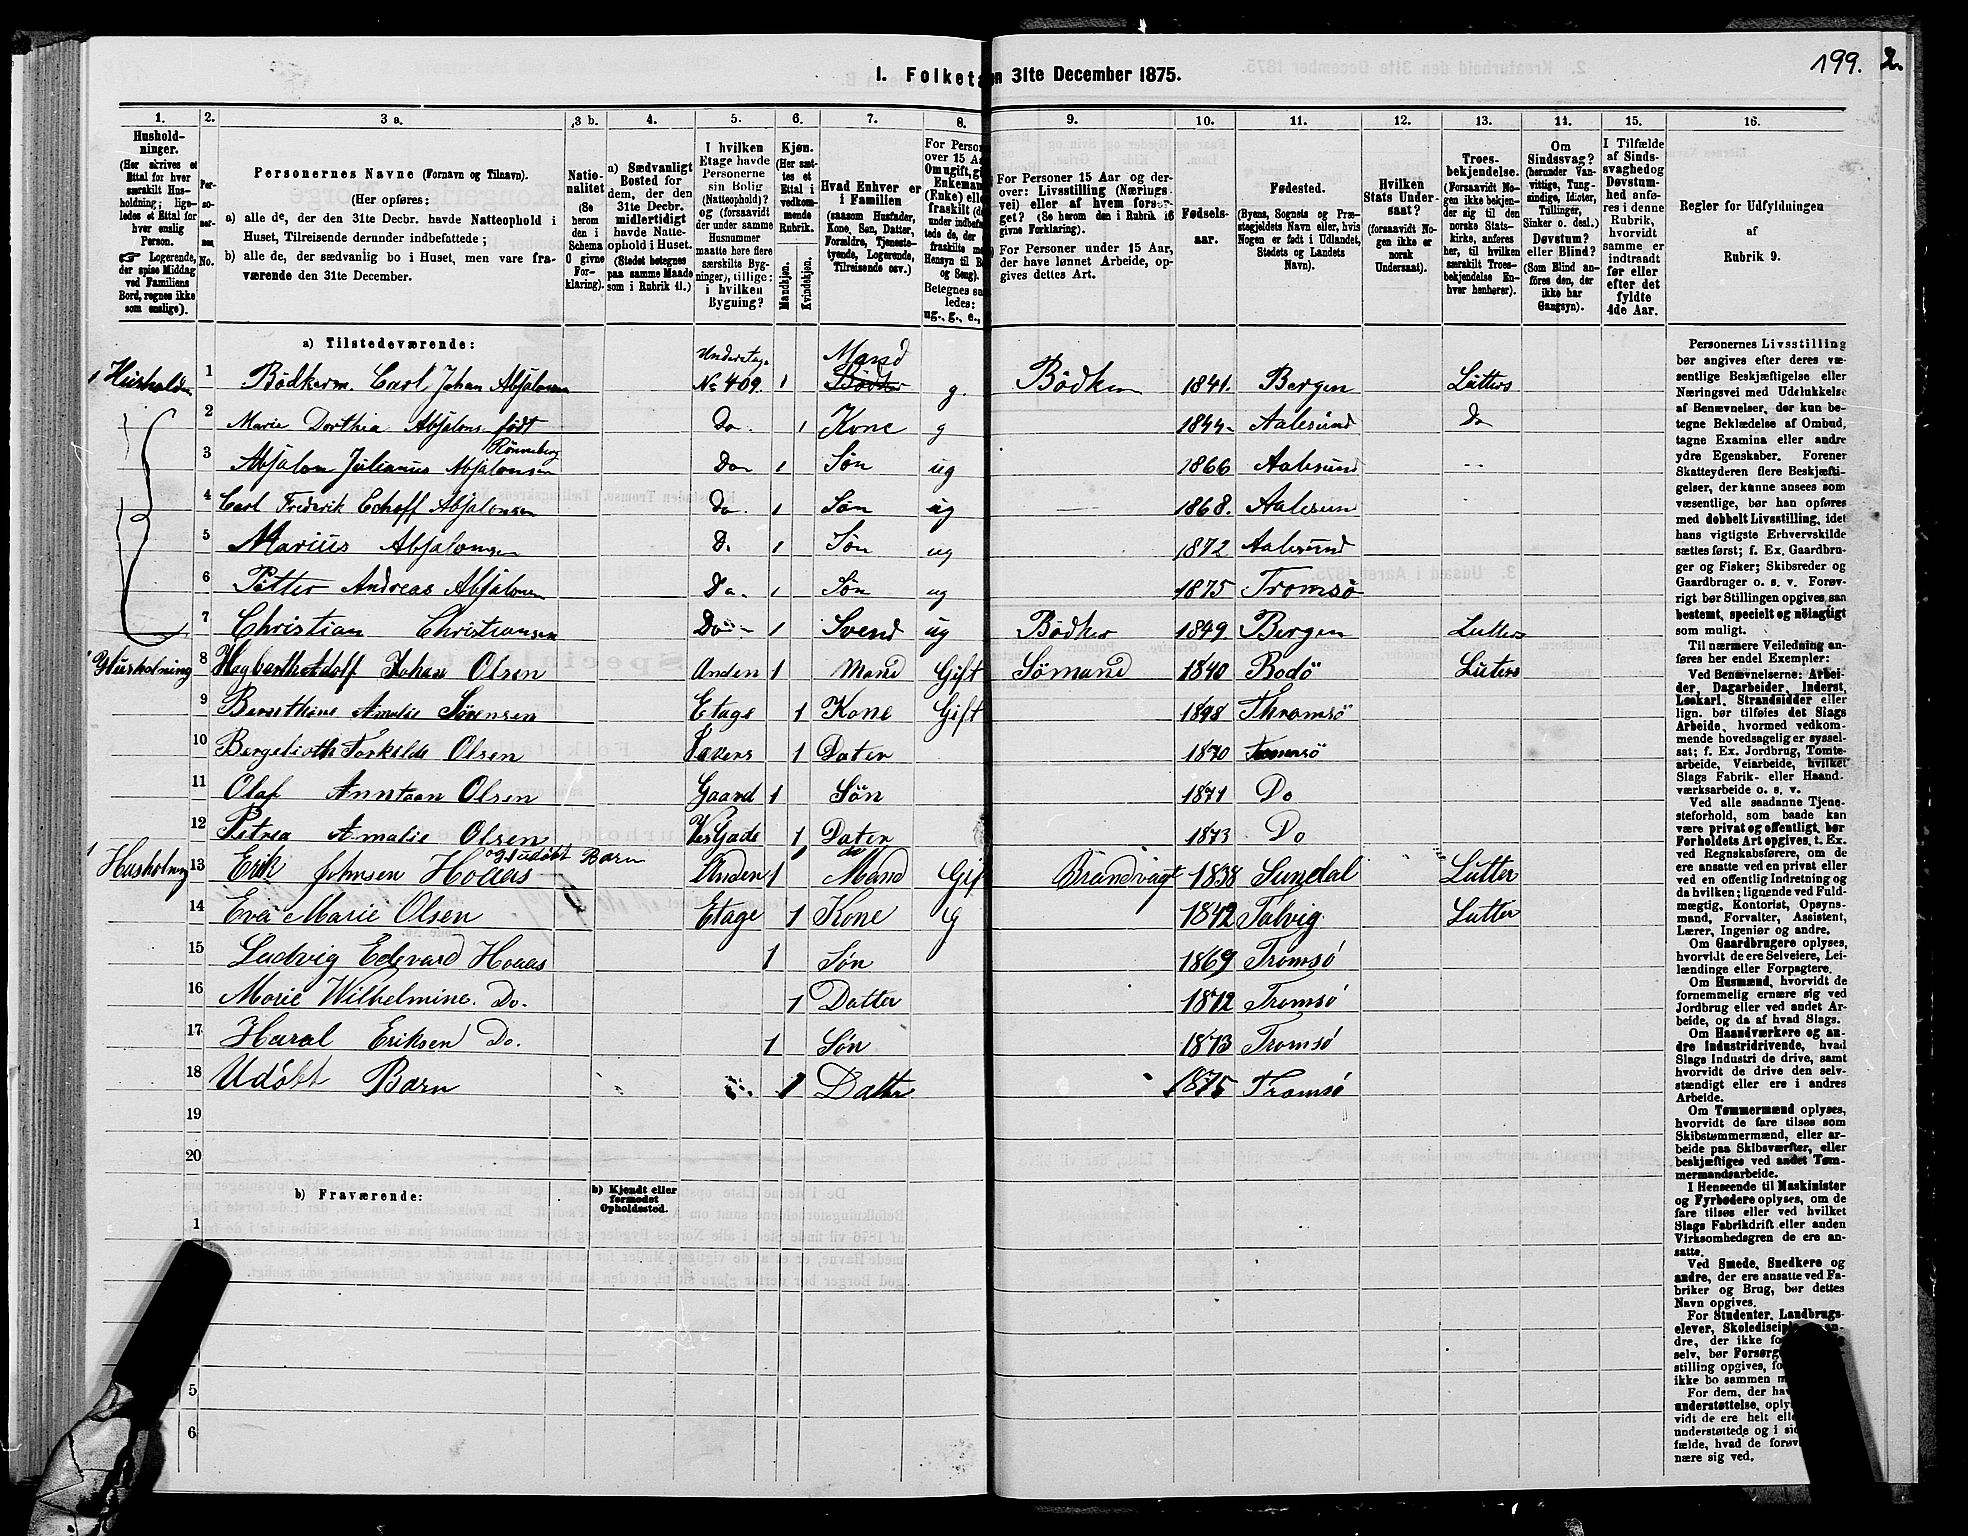 199. 2.
1. Folketæ n 31te December 1875.
1. 2. 3 a. 3 b. 4. 5. 6. 7. 8. 9. 10. 11. 12. 13. 14. 15. 16.
Hushold-
ninger.
(Her skrives et
Ettal for hver
særskilt Hus-
holdning; lige-
ledes et Ettal for
hver enslig
Person.
Logerende,
der spise Middag
ved Familiens
Bord, regnes ikke
som enslige).
Per-
so-
ner-
nes
No.
Personernes Navne (Fornavn og Tilnavn).
(Her opføres:
a) alle de, der den 31te Decbr. havde Natteophold i
Huset, Tilreisende derunder indbefattede;
b) alle de, der sædvanlig bo i Huset, men vare fra-
værende den 31te December.
Natio-
nalitet
(Se
herom
den i
Schema
0 givne
For-
klaring).
a) Sædvanligt
Bosted for
dem, der den
31te Decbr.
midlertidigt
havde Natte-
ophold i Huset.
(Stedet betegnes
paa samme Maade
som i Rubrik 11.)
I hvilken
Etage havde
Personerne
sin Bolig
(Natteophold)?
og (forsaavidt
der under samme
Husnummer
maatte høre flere
særskilte Byg-
ninger), tillige:
i hvilken
Bygning?
Kjøn.
(Her sæt-
tes et
Ettal i
vedkom-
mende
Rubrik.
Mandskjøn.
Kvindekjøn.
Hvad Enhver er
i Familien
(saasom Husfader,
Kone, Søn, Datter,
Forældre, Tjeneste-
tyende, Logerende,
Tilreisende osv.)
For Person
over 15 Aa
Om ugift, gi
Enkeman
(Enke) elle
fraskilt (d
under indbefa
tede de, de
fraskilte m
Hensyn til B
og Seng).
Betegnes saa
ledes:
ug., g., e.,
For Personer 15 Aar og der-
over: Livsstilling (Nærings-
vei) eller af hvem forsør-
get? (Se herom den i Rubrik 16
givne Forklaring).
For Personer under 15 Aar,
der have lønnet Arbeide, op-
gives dettes Art.
Fødsels-
aar.
Fødested.
(Byens, Sognets og Præ-
stegjeldets Navn eller, hvis
Nogen er født i Udlandet,
Stedets og Landets
Navn).
Hvilken
Stats Under-
saat?
(forsaavidt No-
gen ikke er
norsk
Undersaat).
Troes-
bekjendelse.
(Forsaavidt No-
gen ikke bekjen-
der sig til den
norske Stats-
kirke, anføres
her, til hvilken
særskilt Troes-
bekjendelse En-
hver henhører).
Om
Sindssvag?
(herunder Van-
vittige, Tung-
sindige, Idioter,
Tullinger,
Sinker o. desl.)
Døvstum?
eller Blind?
(Som Blind an-
føres den, der
ikke har
Gangsyn).
I Tilfælde
af Sinds-
svaghed og
Døvstum-
hed anfø-
res i denne
Rubrik,
hvorvidt
samme er
indtraadt
før eller
efter det
fyldte
4de Aar.
Regler for Udfyldningen
af
Rubrik 9.
a) Tilstedeværende:
1 Husholdn 1 Bødkerm. Carl Johan Abjalonsen Underetage No 409. 1 Mand Bødker g. Bødker 1841. Bergen Lutters
2 Marie Dorthia Abjalons. født Rønneberg Do. 1 Kone g 1844 Aalesund Do
3 Absalon Julianus Abjalonsen Do 1 Søn ug 1866 Aalesund
4 Carl Frederik Echoff Abjalonsen Do. 1 Søn ug 1868. Aalesun
5 Marius Abjalonsen D. 1 Søn ug 1872 Aalesund
6 Petter Andreas Abjalonsen Do. 1 Søn ug 1875 Tromsø
7 Christian Christiansen Do 1 Svend ug Bødker 1849. Bergen Lutters
1 Husholning 8 Hagbarth Adolf Johan Olsen Anden 1 Mand Gift Sømand 1840 Bodö Luters
9 Bernthine Amalie Sørensen Etage 1 Kone Gift 1848 Thromsö
10 Torkilde Olsen 1 Dater 1870 Tromsö
11 Olaf Anntoan Olsen Gaard 1 Søn 1871 Do
12 Petrea Amalie Olsen 1 Dater 1873 Do
1 Husholning 13 Erik Johnsen Hoaas og Uudøbt Barn Anden 1 Mand Gif Brandvagt 1838 Sundal Lutter
14 Eva Marie Olsen Etage 1 Kone G 1842 Talvig. Lutter
15 Ludvig Edevard Hoaas 1 Søn 1869 Tromsø
16 Marie Wilhelmine. Do. 1 Datter 1872 Tromsø
17 Haral Eriksen Do. 1 Søn 1873 Tromsø
18 Udøbt Barn 1 Datter 1875 Tromsø
19
20
b) Fraværende:
b) Kjendt eller
formodet
Opholdssted.
1
5
6
Personernes Livsstilling
bør angives efter deres væ-
sentlige Beskjæftigelse eller
Næringsvei med Udelukkelse
af Benævnelser, der kun be-
tegne Beklædelse af Ombud,
tagne Examina eller andre
ydre Egenskaber. Forener
Skatteyderen flere Beskjæfti-
gelser, der kunne ansees som
væsentlige, bør han opføres
med dobbelt Livsstilling, idet
hans vigtigste Erhvervskilde
sættes først; f. Ex. Gaardbru-
ger og Fisker; Skibsreder og
Gaardbruger o. s. v. Forøv-
rigt bør Stillingen opgives saa
bestemt, specielt og nöiagtigt
som muligt.
Til nærmere Veiledning an-
føres her endel Exempler:
Ved Benævnelserne: Arbei-
der, Dagarbeider, Inderst,
Løskarl, Strandsidder eller
lign. bør tilføies det Slags
Arbeide, hvormed vedkom-
mende hovedsagelig er syssel-
sat; f. Ex. Jordbrug, Tomte-
arbeide, Veiarbeide, hvilket
Slags Fabrik- eller Haand-
værksarbeide o. s. v.
Ved alle saadanne Tjene-
steforhold, som baade kan
være privat og offentligt, bør
Forholdets Art opgives, t. Ex.
ved Regnskabsførere, om de
ere ansatte ved en privat eller
ved en offentlig Indretning og
da hvilken; lignende ved Fuld-
mægtig, Kontorist, Opsyns-
mand, Forvalter, Assistent,
Lærer, Ingeniør og andre.
Om Gaardbrugere oplyses,
hvorvidt de ere Selveiere, Lei-
lændinge eller Forpagtere.
Om Husmænd, hvorvidt de
fornemmelig ernære sig ved
Jordbrug eller ved andet Ar-
beide, og da af hvad Slags.
Om Haandværkere og an-
dre Industridrivende, hvad
Slags Industri de drive, samt
hvorvidt de drive den selv-
stændigt eller ere i andres
Arbeide.
Om Tømmermænd oplyses,
hvorvidt de fare tilsøs som
Skibstømmermænd, eller ar-
beide paa Skibsværfter, eller
beskjæftiges ved andet Tøm-
mermandsarbeide.
I Henseende til Maskinister
og Fyrbødere oplyses, om de
fare tilsøs eller ved hvilket
Slags Fabrikdrift eller anden
Virksomhedsgren de ere an-
satte.
Ved Smede, Snedkere og
andre, der ere ansatte ved Fa-
briker og Brug, bør dettes
Navn opgives.
For Studenter, Landbrugs-
elever, Skoledisciple an-
dre, der ikke fo
selv, bør Forsørge
stilling opgives, fo
ikke bo sammen m
For dem, der hav
understøttelse, oply
vidt de ere helt elle
understøttede og i si
fælde, hvad de forøv
nære sig ved.